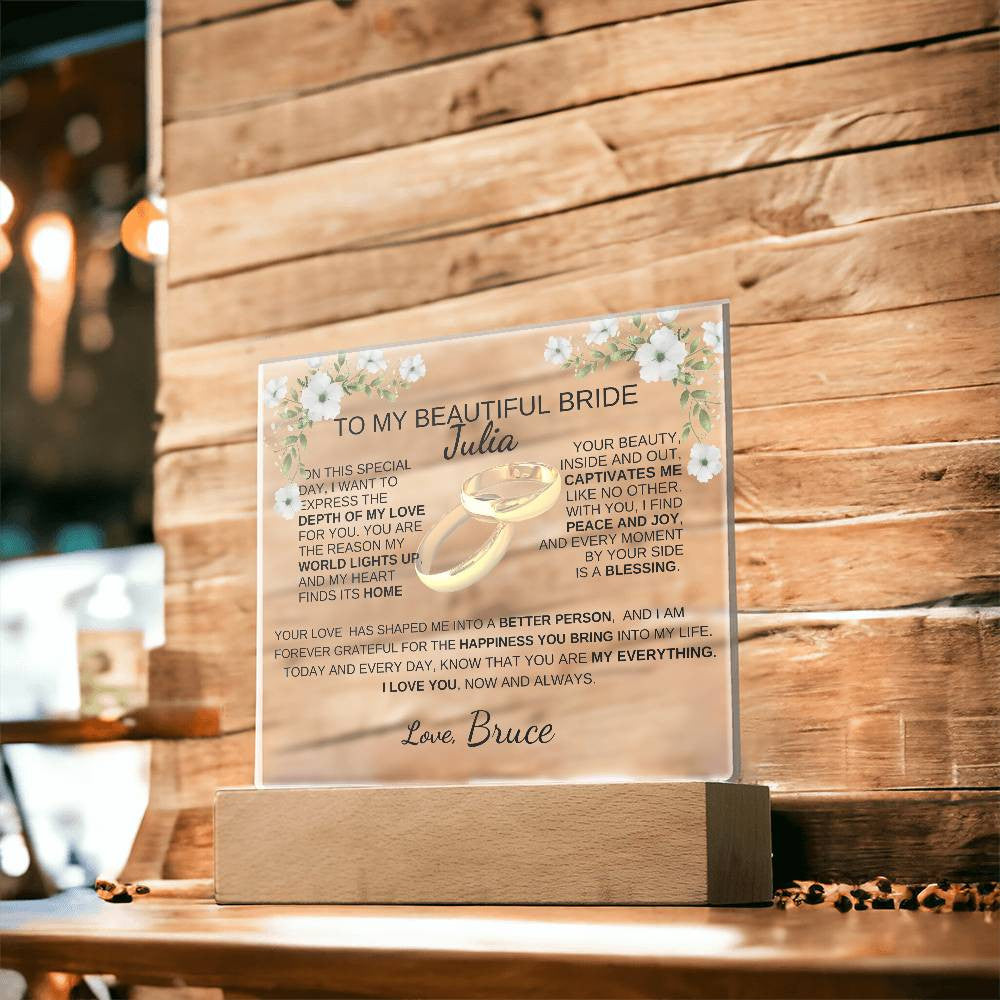 TO MY BEAUTIFUL BRIDE
Julia
ON THIS SPECIAL
DAY, I WANT TO
EXPRESS THE
DEPTH OF MY LOVE
FOR YOU. YOU ARE
THE REASON MY
WORLD LIGHTS UP
AND MY HEART
FINDS ITS HOME
YOUR BEAUTY,
INSIDE AND OUT,
CAPTIVATES ME
LIKE NO OTHER.
WITH YOU, I FIND
PEACE AND JOY,
AND EVERY MOMENT
BY YOUR SIDE
IS A BLESSING.
YOUR LOVE HAS SHAPED ME INTO A BETTER PERSON, AND I AM
FOREVER GRATEFUL FOR THE HAPPINESS YOU BRING INTO MY LIFE.
TODAY AND EVERY DAY, KNOW THAT YOU ARE MY EVERYTHING.
I LOVE YOU, NOW AND ALWAYS.
Love, Bruce